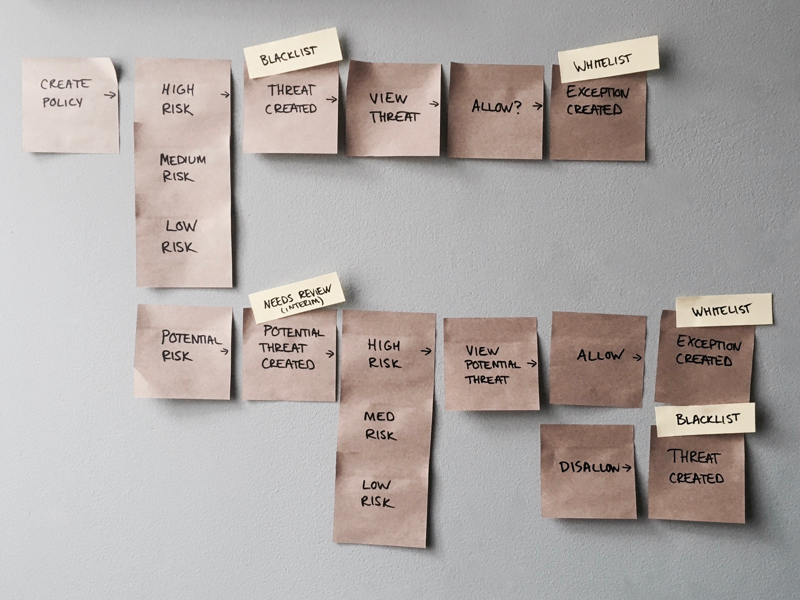 CREATE
POLICY →
HIGH →
RISK
MEDIUM
RISK
LOW
RISK
BLACKLIST
THREAT →
CREATED
VIEW →
THREAT
ALLOW? →
WHITELIST
EXCEPTION
CREATED
POTENTIAL
RISK →
NEEDS REVIEW
(INTERIM)
POTENTIAL
THREAT →
CREATED
HIGH →
RISK
MED
RISK
LOW
RISK
VIEW
POTENTIAL →
THREAT
ALLOW →
WHITELIST
EXCEPTION
CREATED
DISALLOW →
BLACKLIST
THREAT
CREATED